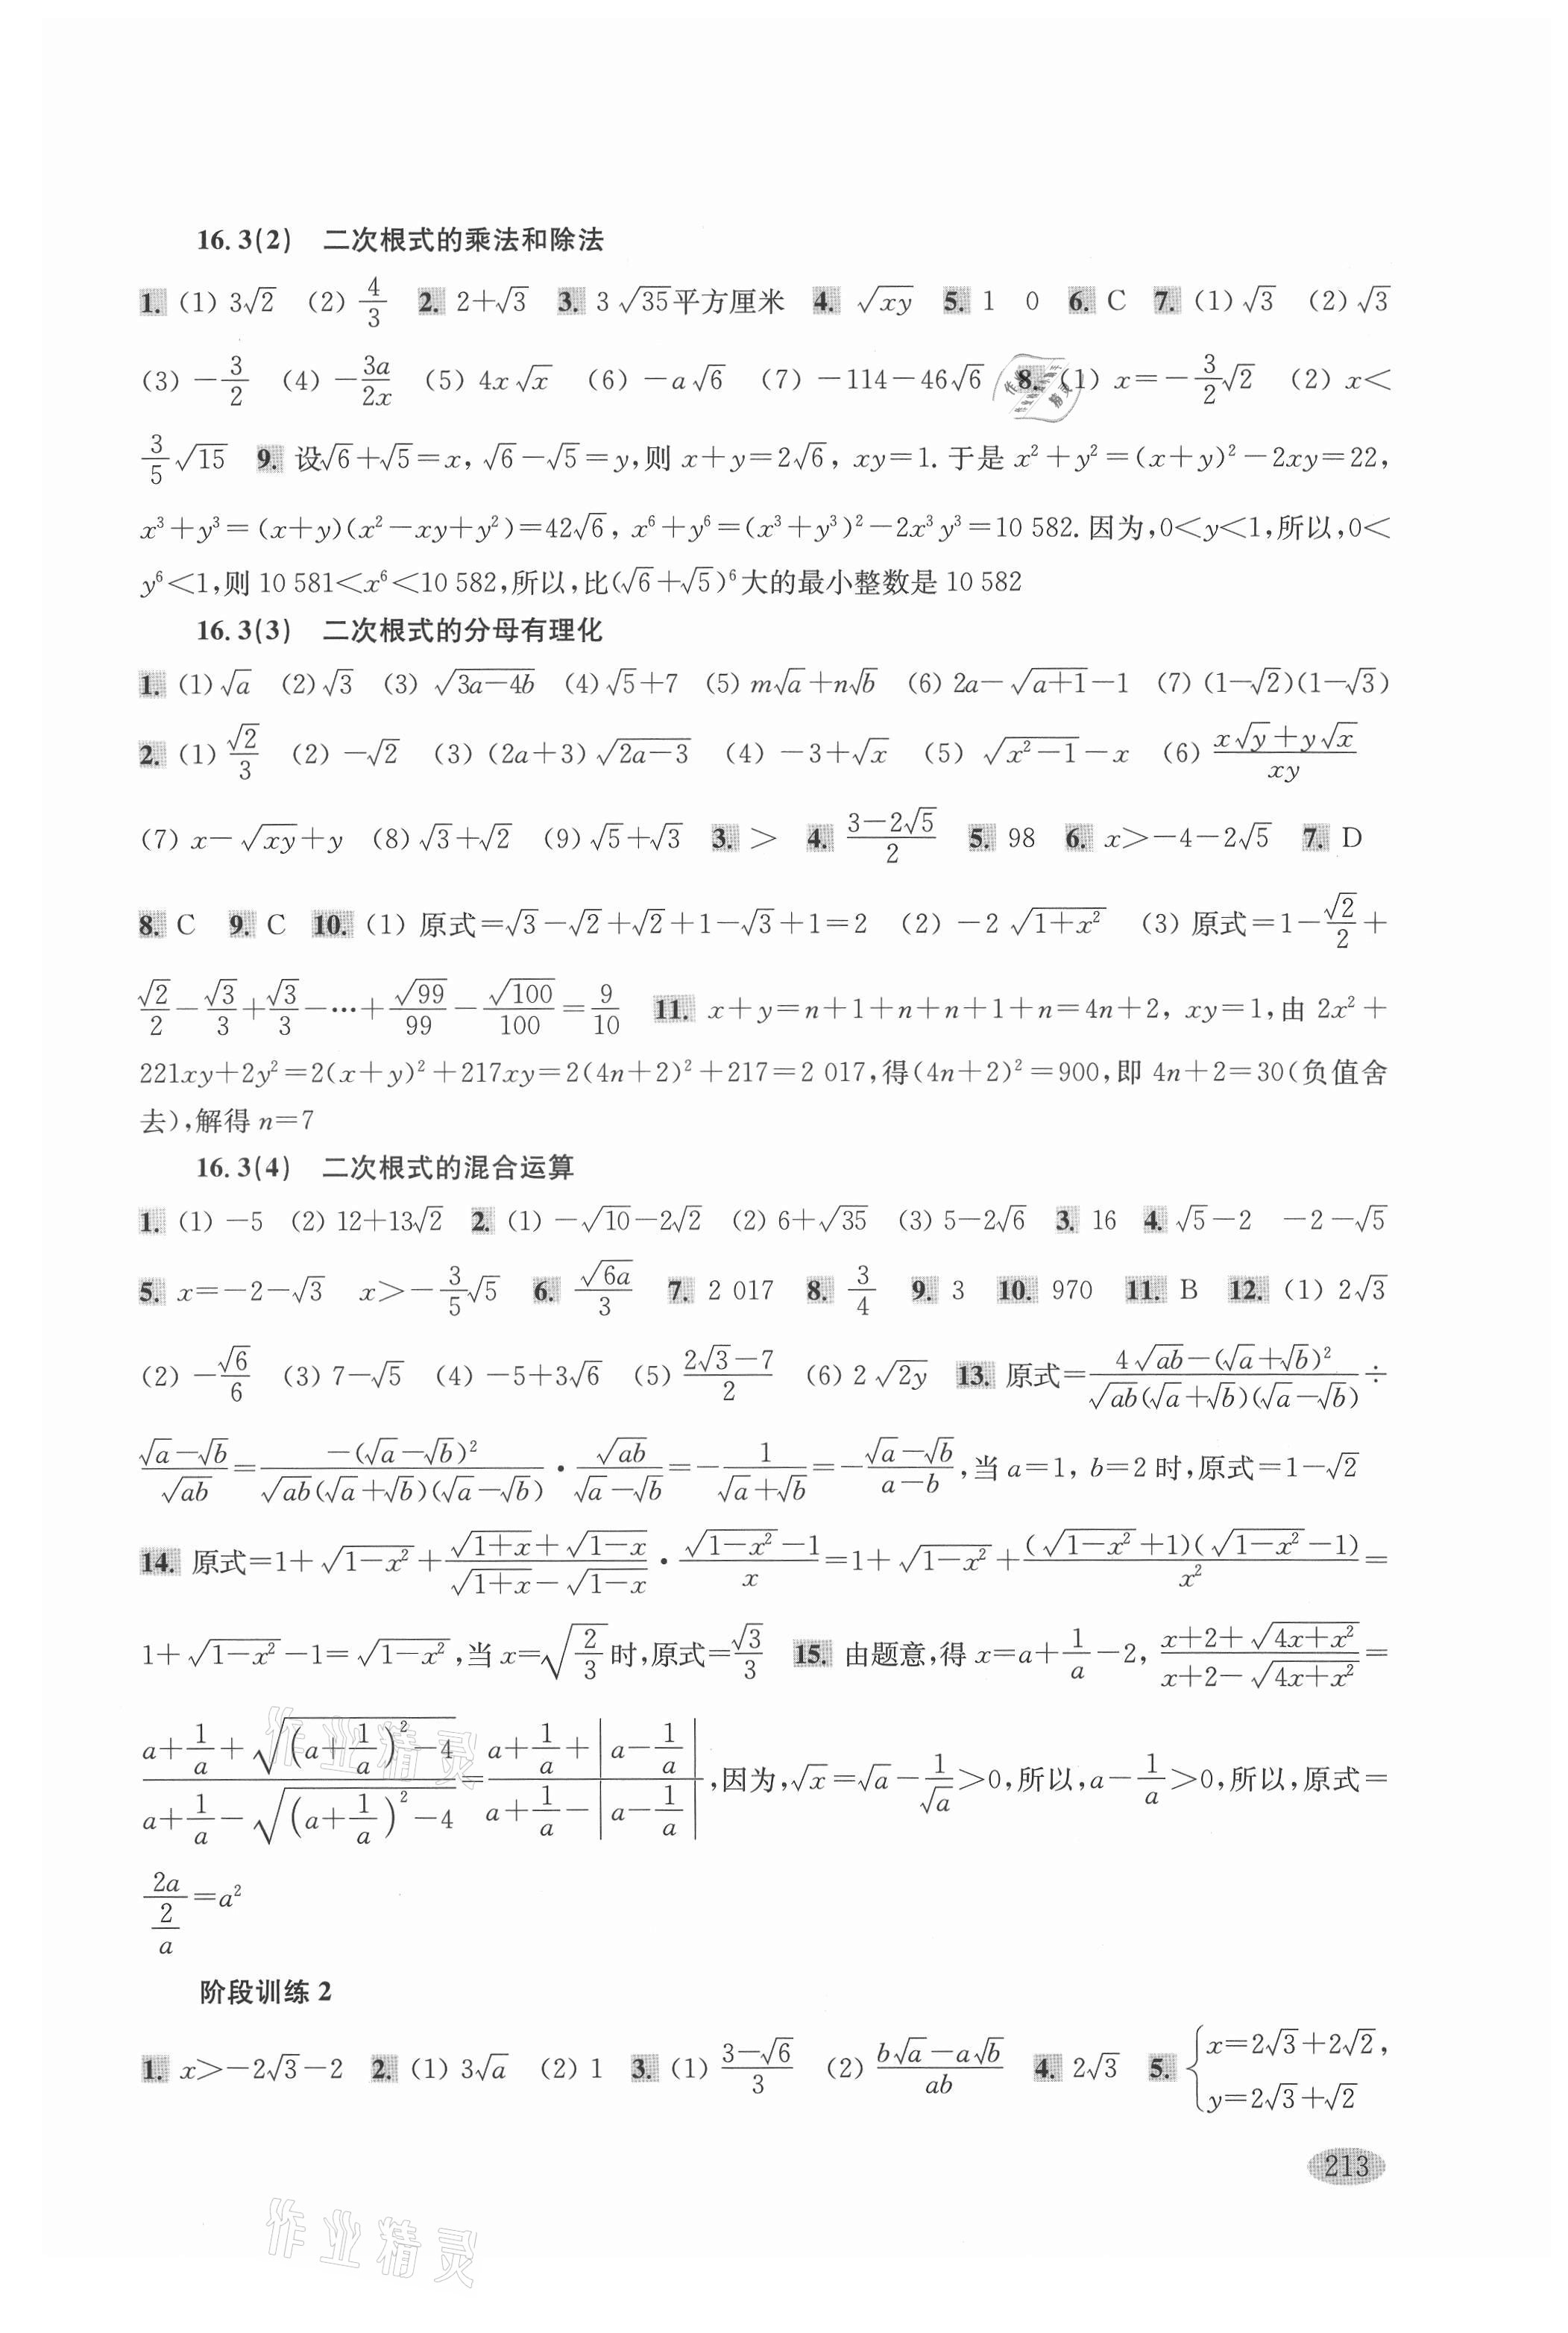 16.3(2) 二次根式的乘法和除法
1. (1) 3√2 (2) 4/3 2. 2+√3 3. 3√35平方厘米 4. √xy 5. 1 0 6. C 7. (1) √3 (2) √3
(3) -3/2 (4) -3a/2x (5) 4x√x (6) -a√6 (7) -114-46√6 8. (1) x=-3/2√2 (2) x<
3/5√15 9. 设√6+√5=x, √6-√5=y,则 x+y=2√6, xy=1. 于是 x²+y²=(x+y)²-2xy=22,
x³+y³=(x+y)(x²-xy+y²)=42√6, x⁶+y⁶=(x³+y³)²-2x³y³=10 582. 因为,0<y<1,所以,0<
y⁶<1,则 10 581<x⁶<10 582,所以,比(√6+√5)⁶大的最小整数是 10 582
16.3(3) 二次根式的分母有理化
1. (1) √a (2) √3 (3) √(3a-4b) (4) √5+7 (5) m√a+n√b (6) 2a-√(a+1)-1 (7) (1-√2)(1-√3)
2. (1) √2/3 (2) -√2 (3) (2a+3)√(2a-3) (4) -3+√x (5) √(x²-1)-x (6) (x√y+y√x)/xy
(7) x-√xy+y (8) √3+√2 (9) √5+√3 3. > 4. (3-2√5)/2 5. 98 6. x>-4-2√5 7. D
8. C 9. C 10. (1) 原式=√3-√2+√2+1-√3+1=2 (2) -2√(1+x²) (3) 原式=1-√2/2+
√2/2-√3/3+√3/3-…+√99/99-√100/100=9/10 11. x+y=n+1+n+n+1+n=4n+2, xy=1,由 2x²+
221xy+2y²=2(x+y)²+217xy=2(4n+2)²+217=2 017,得(4n+2)²=900,即 4n+2=30(负值舍
去),解得 n=7
16.3(4) 二次根式的混合运算
1. (1) -5 (2) 12+13√2 2. (1) -√10-2√2 (2) 6+√35 (3) 5-2√6 3. 16 4. √5-2 -2-√5
5. x=-2-√3 x>-3/5√5 6. √(6a)/3 7. 2 017 8. 3/4 9. 3 10. 970 11. B 12. (1) 2√3
(2) -√6/6 (3) 7-√5 (4) -5+3√6 (5) (2√3-7)/2 (6) 2√(2y) 13. 原式=(4√ab-(√a+√b)²)/(√ab(√a+√b)(√a-√b))÷
(√a-√b)/√ab=-(√a-√b)²/(√ab(√a+√b)(√a-√b))·√ab/(√a-√b)=-1/(√a+√b)=-(√a-√b)/(a-b),当 a=1, b=2 时,原式=1-√2
14. 原式=1+√(1-x²)+(√(1+x)+√(1-x))/(√(1+x)-√(1-x))·(√(1-x²)-1)/x=1+√(1-x²)+((√(1-x²)+1)(√(1-x²)-1))/x²=
1+√(1-x²)-1=√(1-x²),当 x=√(2/3)时,原式=√3/3 15. 由题意,得 x=a+1/a-2, (x+2+√(4x+x²))/(x+2-√(4x+x²))=
(a+1/a+√((a+1/a)²-4))/(a+1/a-√((a+1/a)²-4))=(a+1/a+|a-1/a|)/(a+1/a-|a-1/a|),因为,√x=√a-1/√a>0,所以,a-1/a>0,所以,原式=
2a/(2/a)=a²
阶段训练 2
1. x>-2√3-2 2. (1) 3√a (2) 1 3. (1) (3-√6)/3 (2) (b√a-a√b)/ab 4. 2√3 5. {x=2√3+2√2,
y=2√3+√2
213
作业精灵